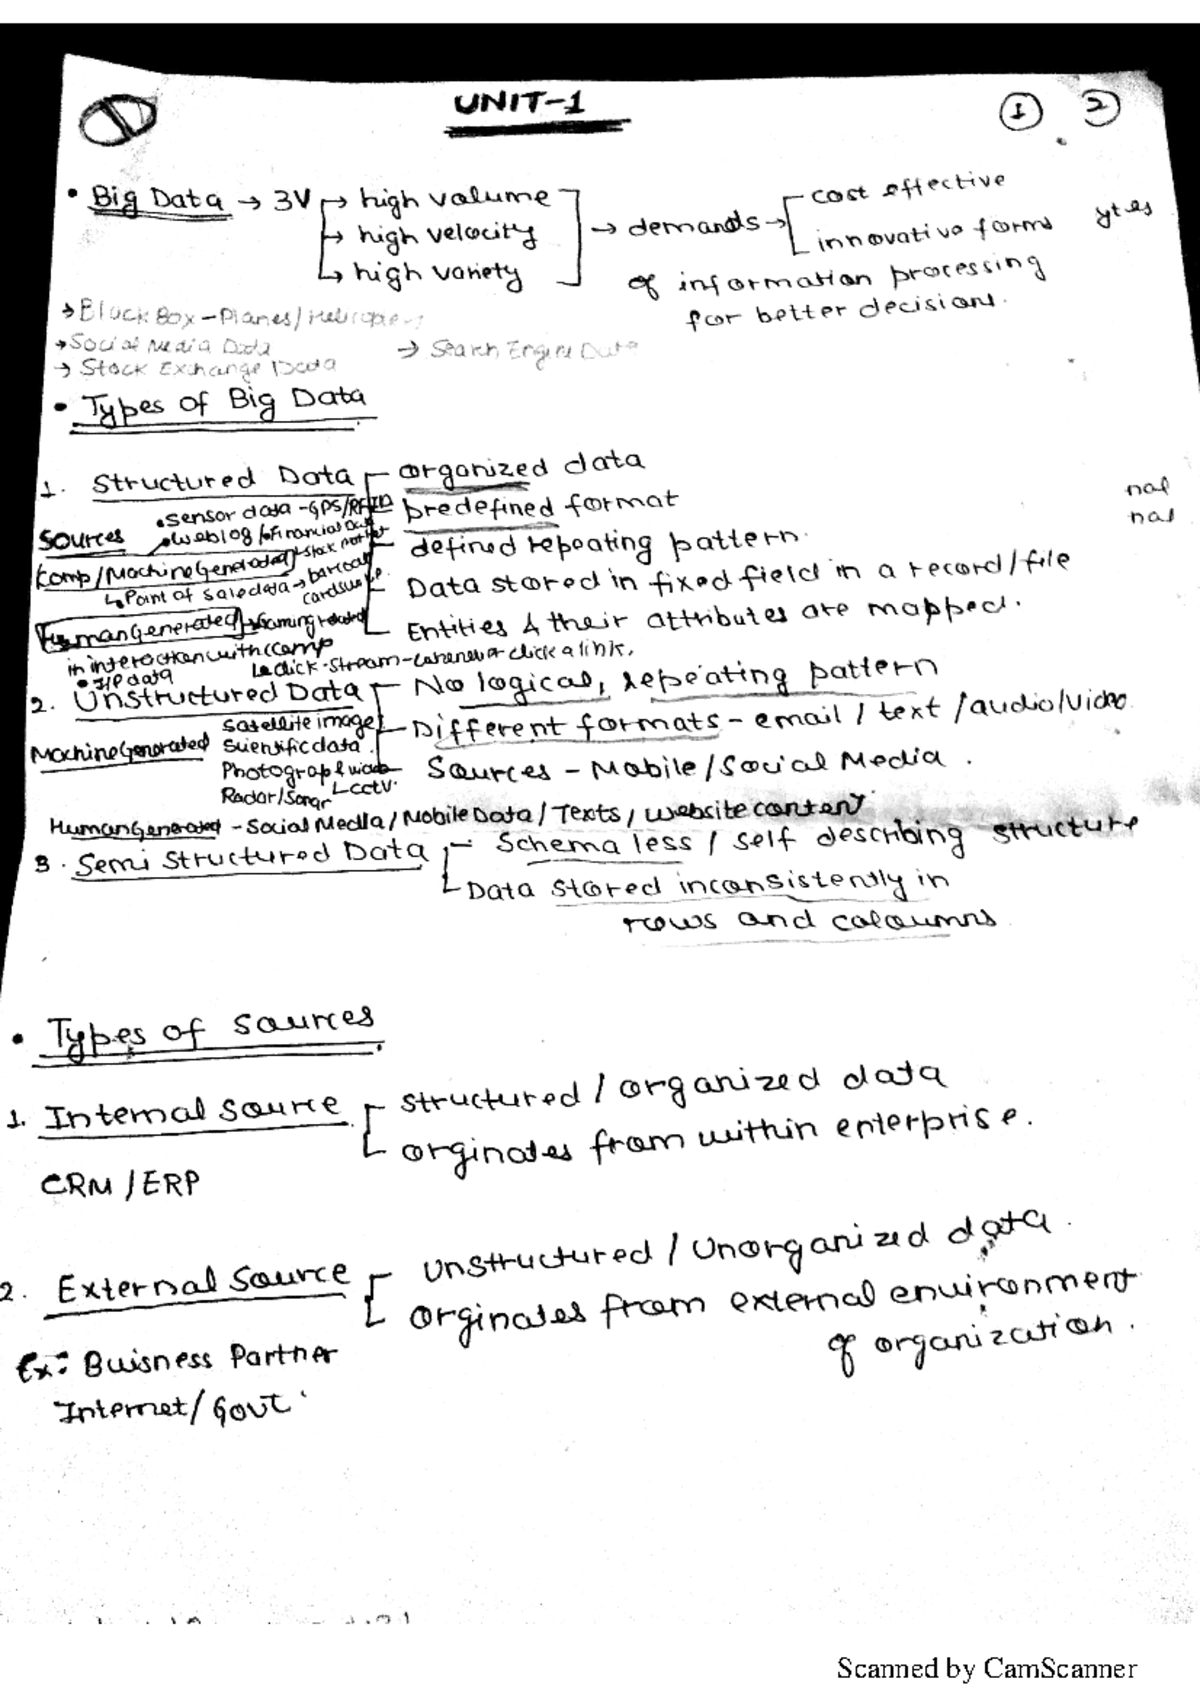 UNIT-1
1 2
• Big Data → 3V → high volume
→ high velocity
→ high variety
→ demands → cost effective
innovative forms
of information processing
for better decisions.
ytes
→ Black Box - Planes/
→ Social Media Data → Search Engine Data
→ Stock Exchange Data
• Types of Big Data
1. Structured Data - organized data
predefined format
defined repeating pattern.
Data stored in fixed field in a record/file
Entities & their attributes are mapped.
nal
nal
Sources • Sensor data - GPS/RFID
• Weblog /• Financial
Comp/Machine Generated
↳ Point of sale data → barcode
Human Generated → Gaming related
in interaction with comp
• I/P data ↳ click-stream - whenever click a link.
2. Unstructured Data - No logical, repeating pattern
Different formats - email / text / audio/Video
Sources - Mobile/Social Media.
Machine Generated Satellite image
Scientific data.
Photograph & video
└ cctv.
Radar/Sonar
Human Generated - Social Media / Mobile Data / Texts / website content
3. Semi Structured Data - Schema less / self describing structure
Data stored inconsistently in
rows and coloumns
• Types of sources
1. Internal source - structured / organized data
orginates from within enterprise.
CRM / ERP
2. External source - unstructured / unorganized data.
orginates from external environment
of organization.
Ex: Buisness Partner
Internet/ Govt
Scanned by CamScanner